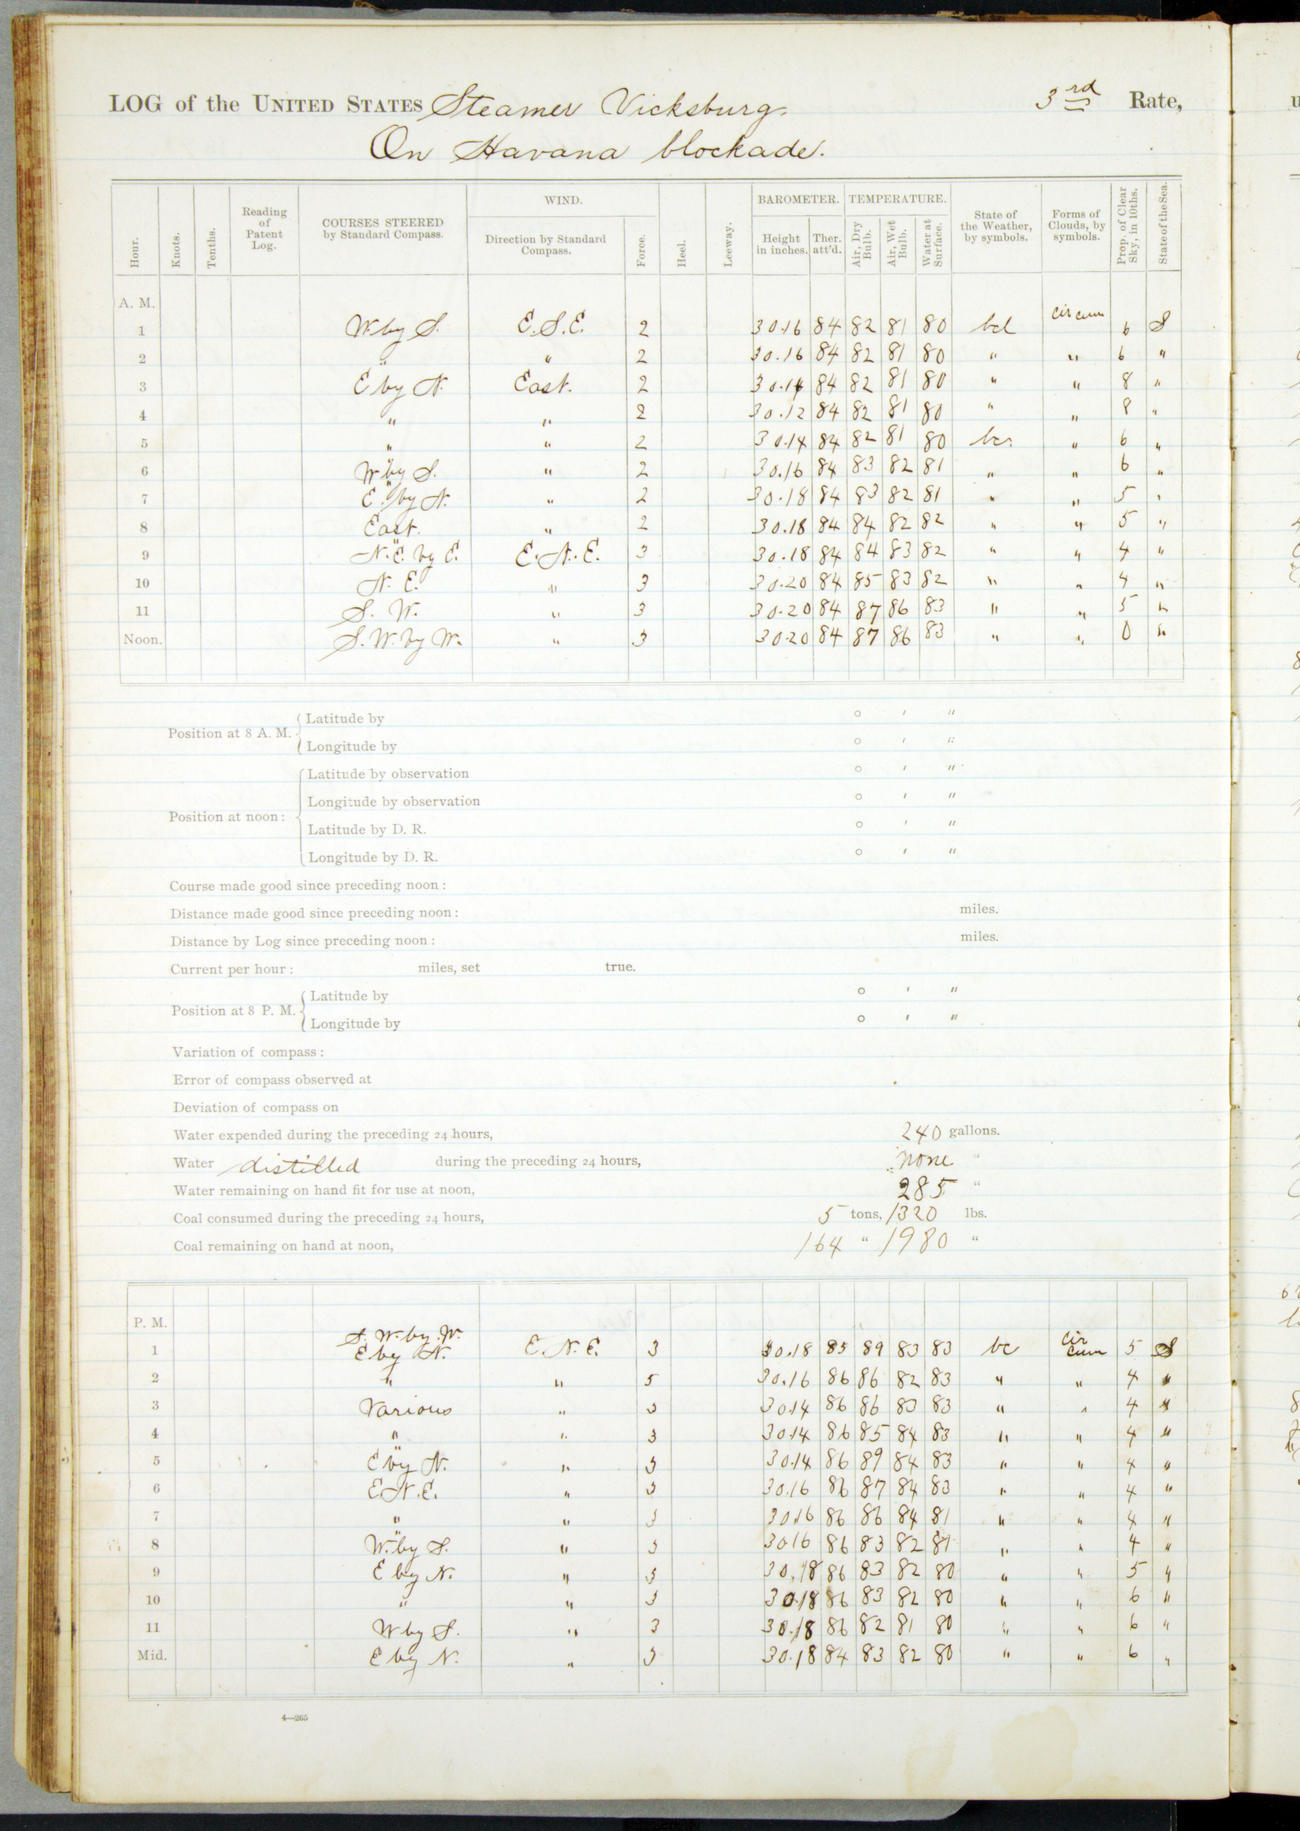 LOG of the UNITED STATES Steamer Vicksburg. 3rd Rate,
On Havana blockade.
Hour. Knots. Tenths. Reading of Patent Log. COURSES STEERED by Standard Compass. WIND. Direction by Standard Compass. Force. Heel. Leeway. BAROMETER. Height in inches. Ther. att'd. TEMPERATURE. Air, Dry Bulb. Air, Wet Bulb. Water at Surface. State of the Weather, by symbols. Forms of Clouds, by symbols. Prop. of Clear Sky, in 10ths. State of the Sea.
A. M.
1 W by S. E.S.E. 2 30.16 84 82 81 80 bcl cir cum 6 S
2 " " 2 30.16 84 82 81 80 " " 6 "
3 E by N East. 2 30.14 84 82 81 80 " " 8 "
4 " " 2 30.12 84 82 81 80 " " 8 "
5 " " 2 30.14 84 82 81 80 bc. " 6 "
6 W by S. " 2 30.16 84 83 82 81 " " 6 "
7 E. by N. " 2 30.18 84 83 82 81 " " 5 "
8 East. " 2 30.18 84 84 82 82 " " 5 "
9 N.E. by E. E.N.E. 3 30.18 84 84 83 82 " " 4 "
10 N. E. " 3 30.20 84 85 83 82 " " 4 "
11 S. W. " 3 30.20 84 87 86 83 " " 5 "
Noon. S.W. by W. " 3 30.20 84 87 86 83 " " 0 "
Position at 8 A. M. Latitude by ° ' "
Longitude by ° ' "
Position at noon: Latitude by observation ° ' "
Longitude by observation ° ' "
Latitude by D. R. ° ' "
Longitude by D. R. ° ' "
Course made good since preceding noon:
Distance made good since preceding noon: miles.
Distance by Log since preceding noon: miles.
Current per hour: miles, set true.
Position at 8 P. M. Latitude by ° ' "
Longitude by ° ' "
Variation of compass:
Error of compass observed at
Deviation of compass on
Water expended during the preceding 24 hours, 240 gallons.
Water distilled during the preceding 24 hours, none "
Water remaining on hand fit for use at noon, 285 "
Coal consumed during the preceding 24 hours, 5 tons, 1320 lbs.
Coal remaining on hand at noon, 164 " 1980 "
P. M.
S. W. by W.
1 E by N. E.N.E. 3 30.18 85 89 83 83 bc cir cum 5 S
2 " " 5 30.16 86 86 82 83 " " 4 "
3 Various " 3 30.14 86 86 83 83 " " 4 "
4 " " 3 30.14 86 85 84 83 " " 4 "
5 E by N. " 3 30.14 86 89 84 83 " " 4 "
6 E.N.E. " 3 30.16 86 87 84 83 " " 4 "
7 " " 3 30.16 86 86 84 81 " " 4 "
8 W. by S. " 3 30.16 86 83 82 81 " " 4 "
9 E by N. " 3 30.18 86 83 82 80 " " 5 "
10 " " 3 30.18 86 83 82 80 " " 6 "
11 W by S. " 3 30.18 86 82 81 80 " " 6 "
Mid. E by N. " 3 30.18 84 83 82 80 " " 6 "
4—265